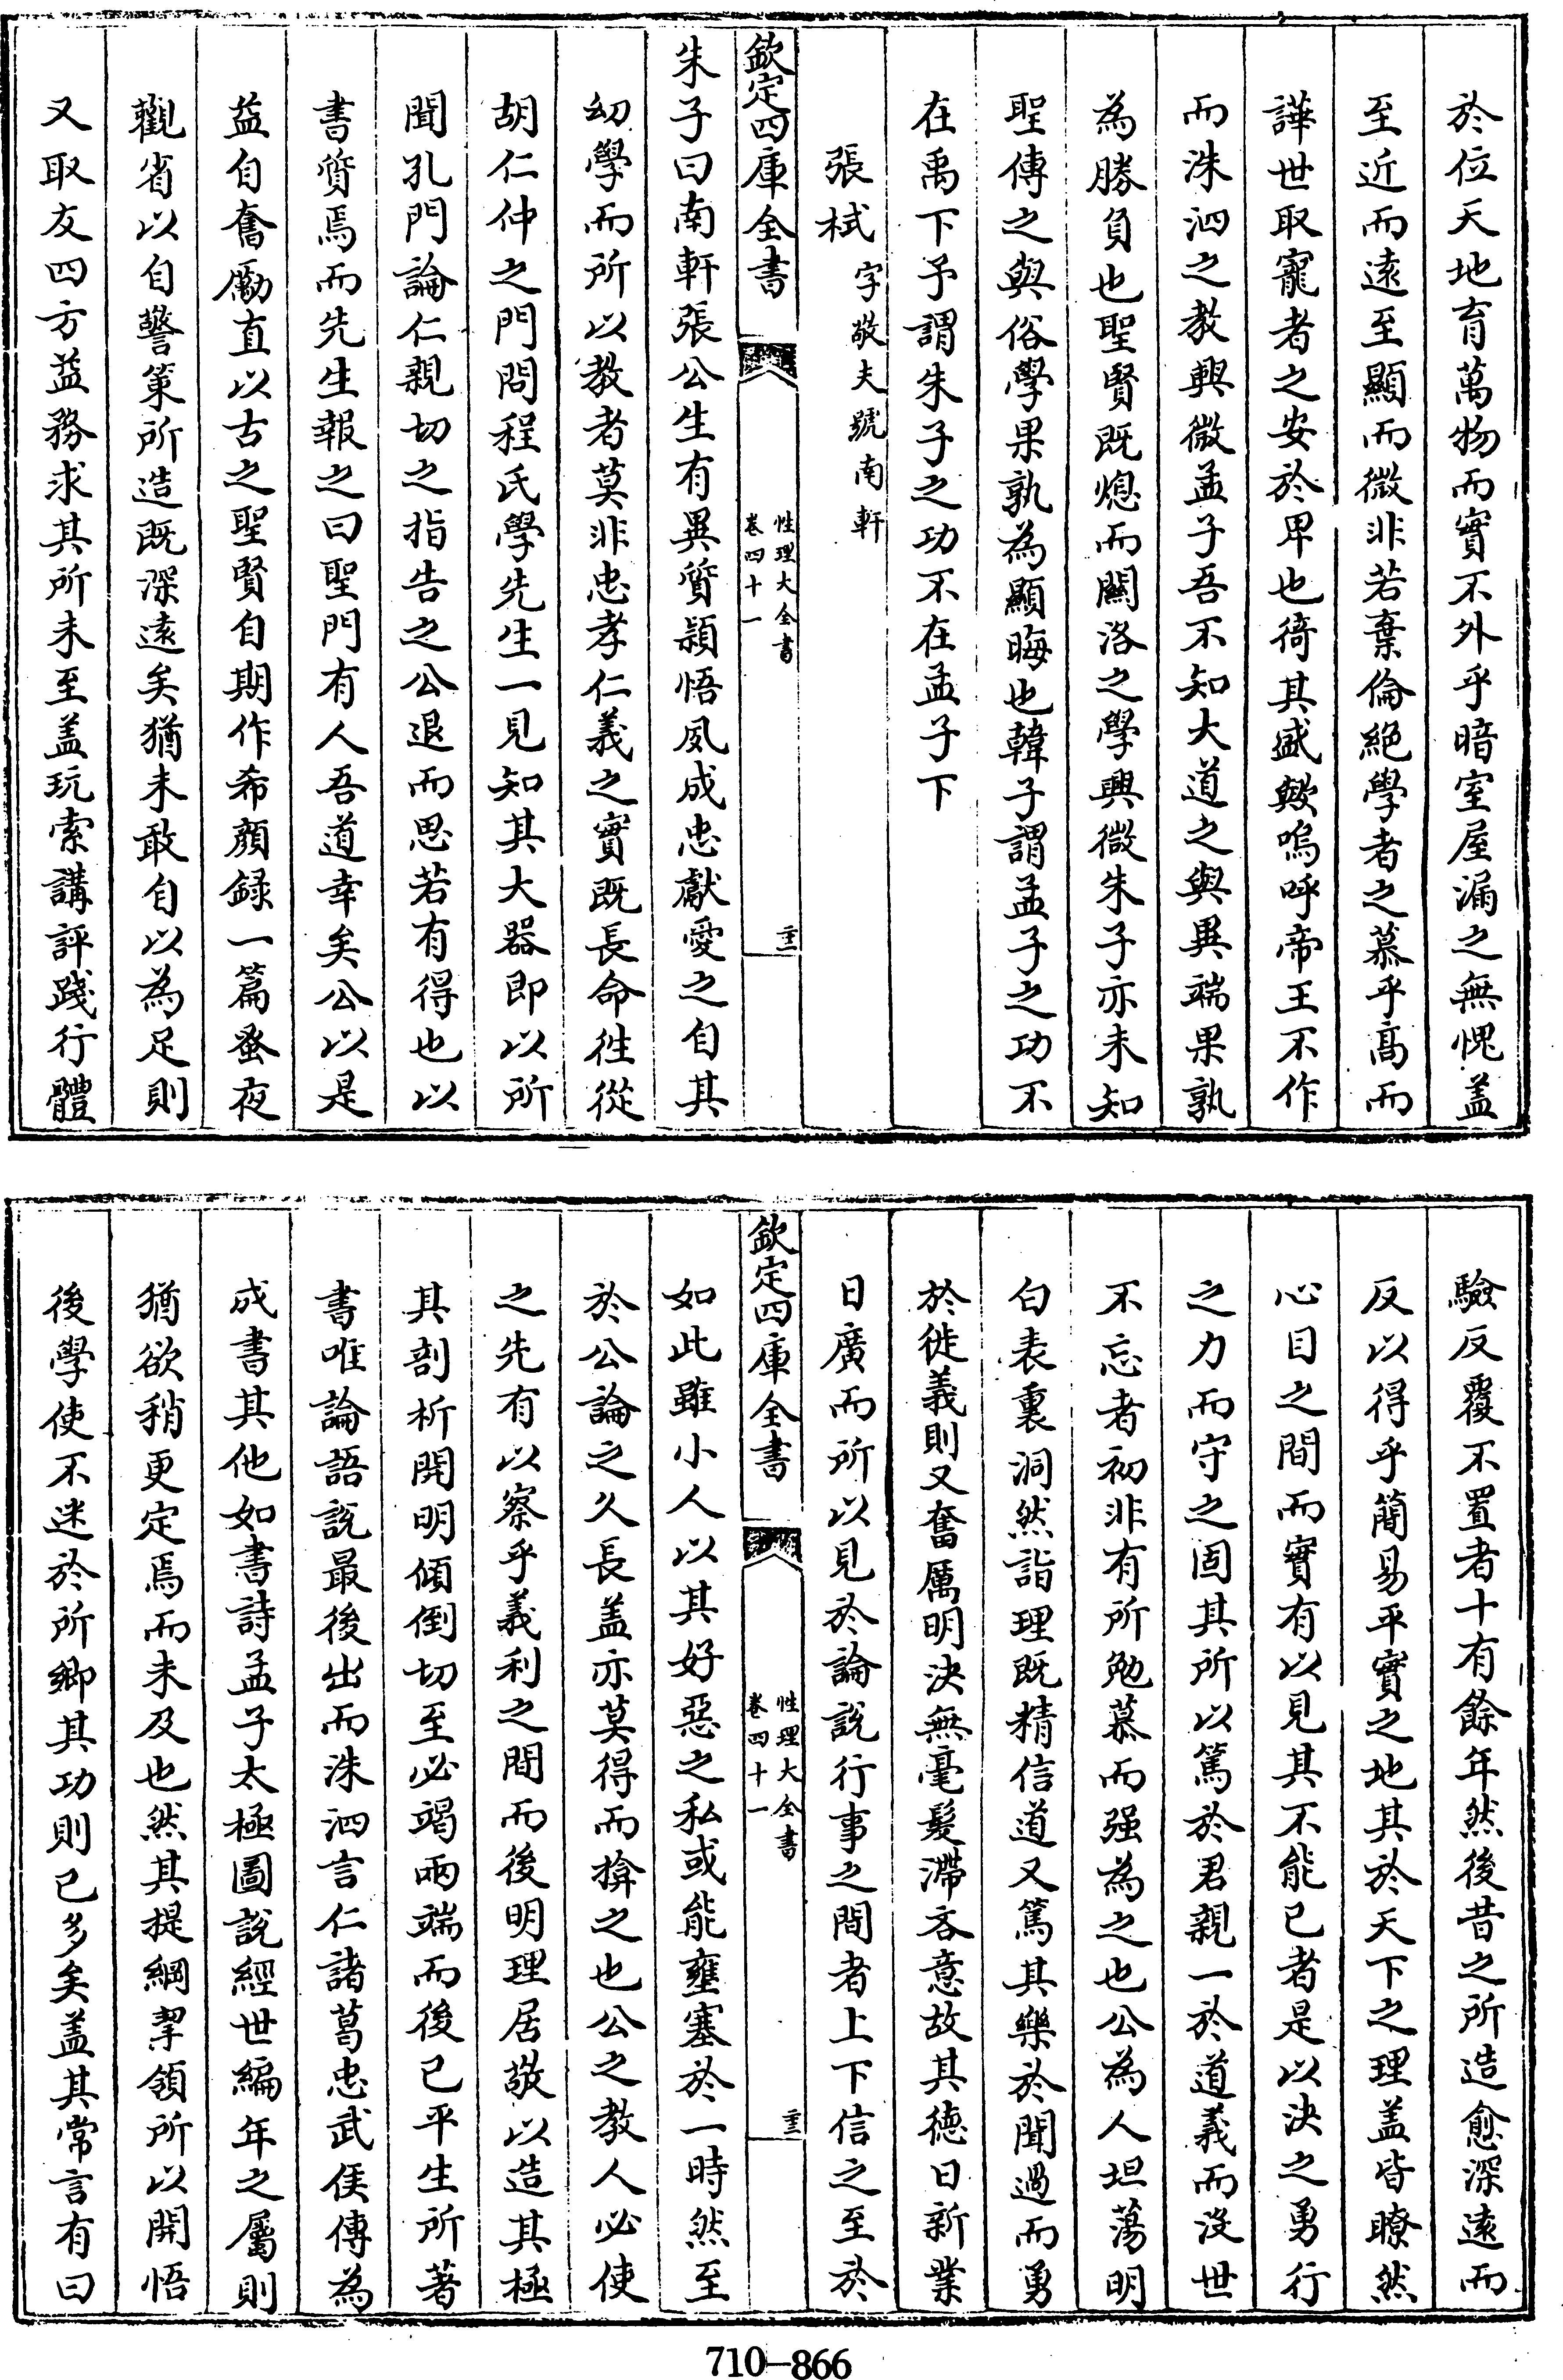 於位天地育萬物而實不外乎暗室屋漏之無愧盖
至近而逺至顯而微非若棄倫絶學者之慕乎髙而
譁世取寵者之安於卑也猗其盛歟嗚呼帝王不作
而洙泗之教興微孟子吾不知大道之與異端果孰
為勝負也聖賢既熄而關洛之學興微朱子亦未知
聖傳之與俗學果孰為顯晦也韓子謂孟子之功不
在禹下予謂朱子之功不在孟子下
張栻字敬夫號南軒
欽定四庫全書
性理大全書
卷四十一
朱子曰南軒張公生有異質穎悟夙成忠獻愛之自其
幼學而所以教者莫非忠孝仁義之實既長命徃從
胡仁仲之門問程氏學先生一見知其大器即以所
聞孔門論仁親切之指告之公退而思若有得也以
書質焉而先生報之曰聖門有人吾道幸矣公以是
益自奮勵直以古之聖賢自期作希顔録一篇蚤夜
觀省以自警策所造既深逺矣猶未敢自以為足則
又取友四方益務求其所未至盖玩索講評踐行體
驗反覆不置者十有餘年然後昔之所造愈深逺而
反以得乎簡易平實之地其於天下之理盖皆瞭然
心目之間而實有以見其不能已者是以決之勇行
之力而守之固其所以篤於君親一於道義而沒世
不忘者初非有所勉慕而强為之也公為人坦蕩明
白表裏洞然詣理既精信道又篤其樂於聞過而勇
於徙義則又奮厲明決無毫髮滯吝意故其徳日新業
日廣而所以見於論說行事之間者上下信之至於
欽定四庫全書
性理大全書
卷四十一
如此雖小人以其好惡之私或能壅塞於一時然至
於公論之久長盖亦莫得而揜之也公之教人必使
之先有以察乎義利之間而後明理居敬以造其極
其剖析開明傾倒切至必竭兩端而後已平生所著
書唯論語說最後出而洙泗言仁諸葛忠武侯傳為
成書其他如書詩孟子太極圖說經世編年之屬則
猶欲稍更定焉而未及也然其提綱挈領所以開悟
後學使不迷於所鄉其功則已多矣盖其常言有曰
710-866